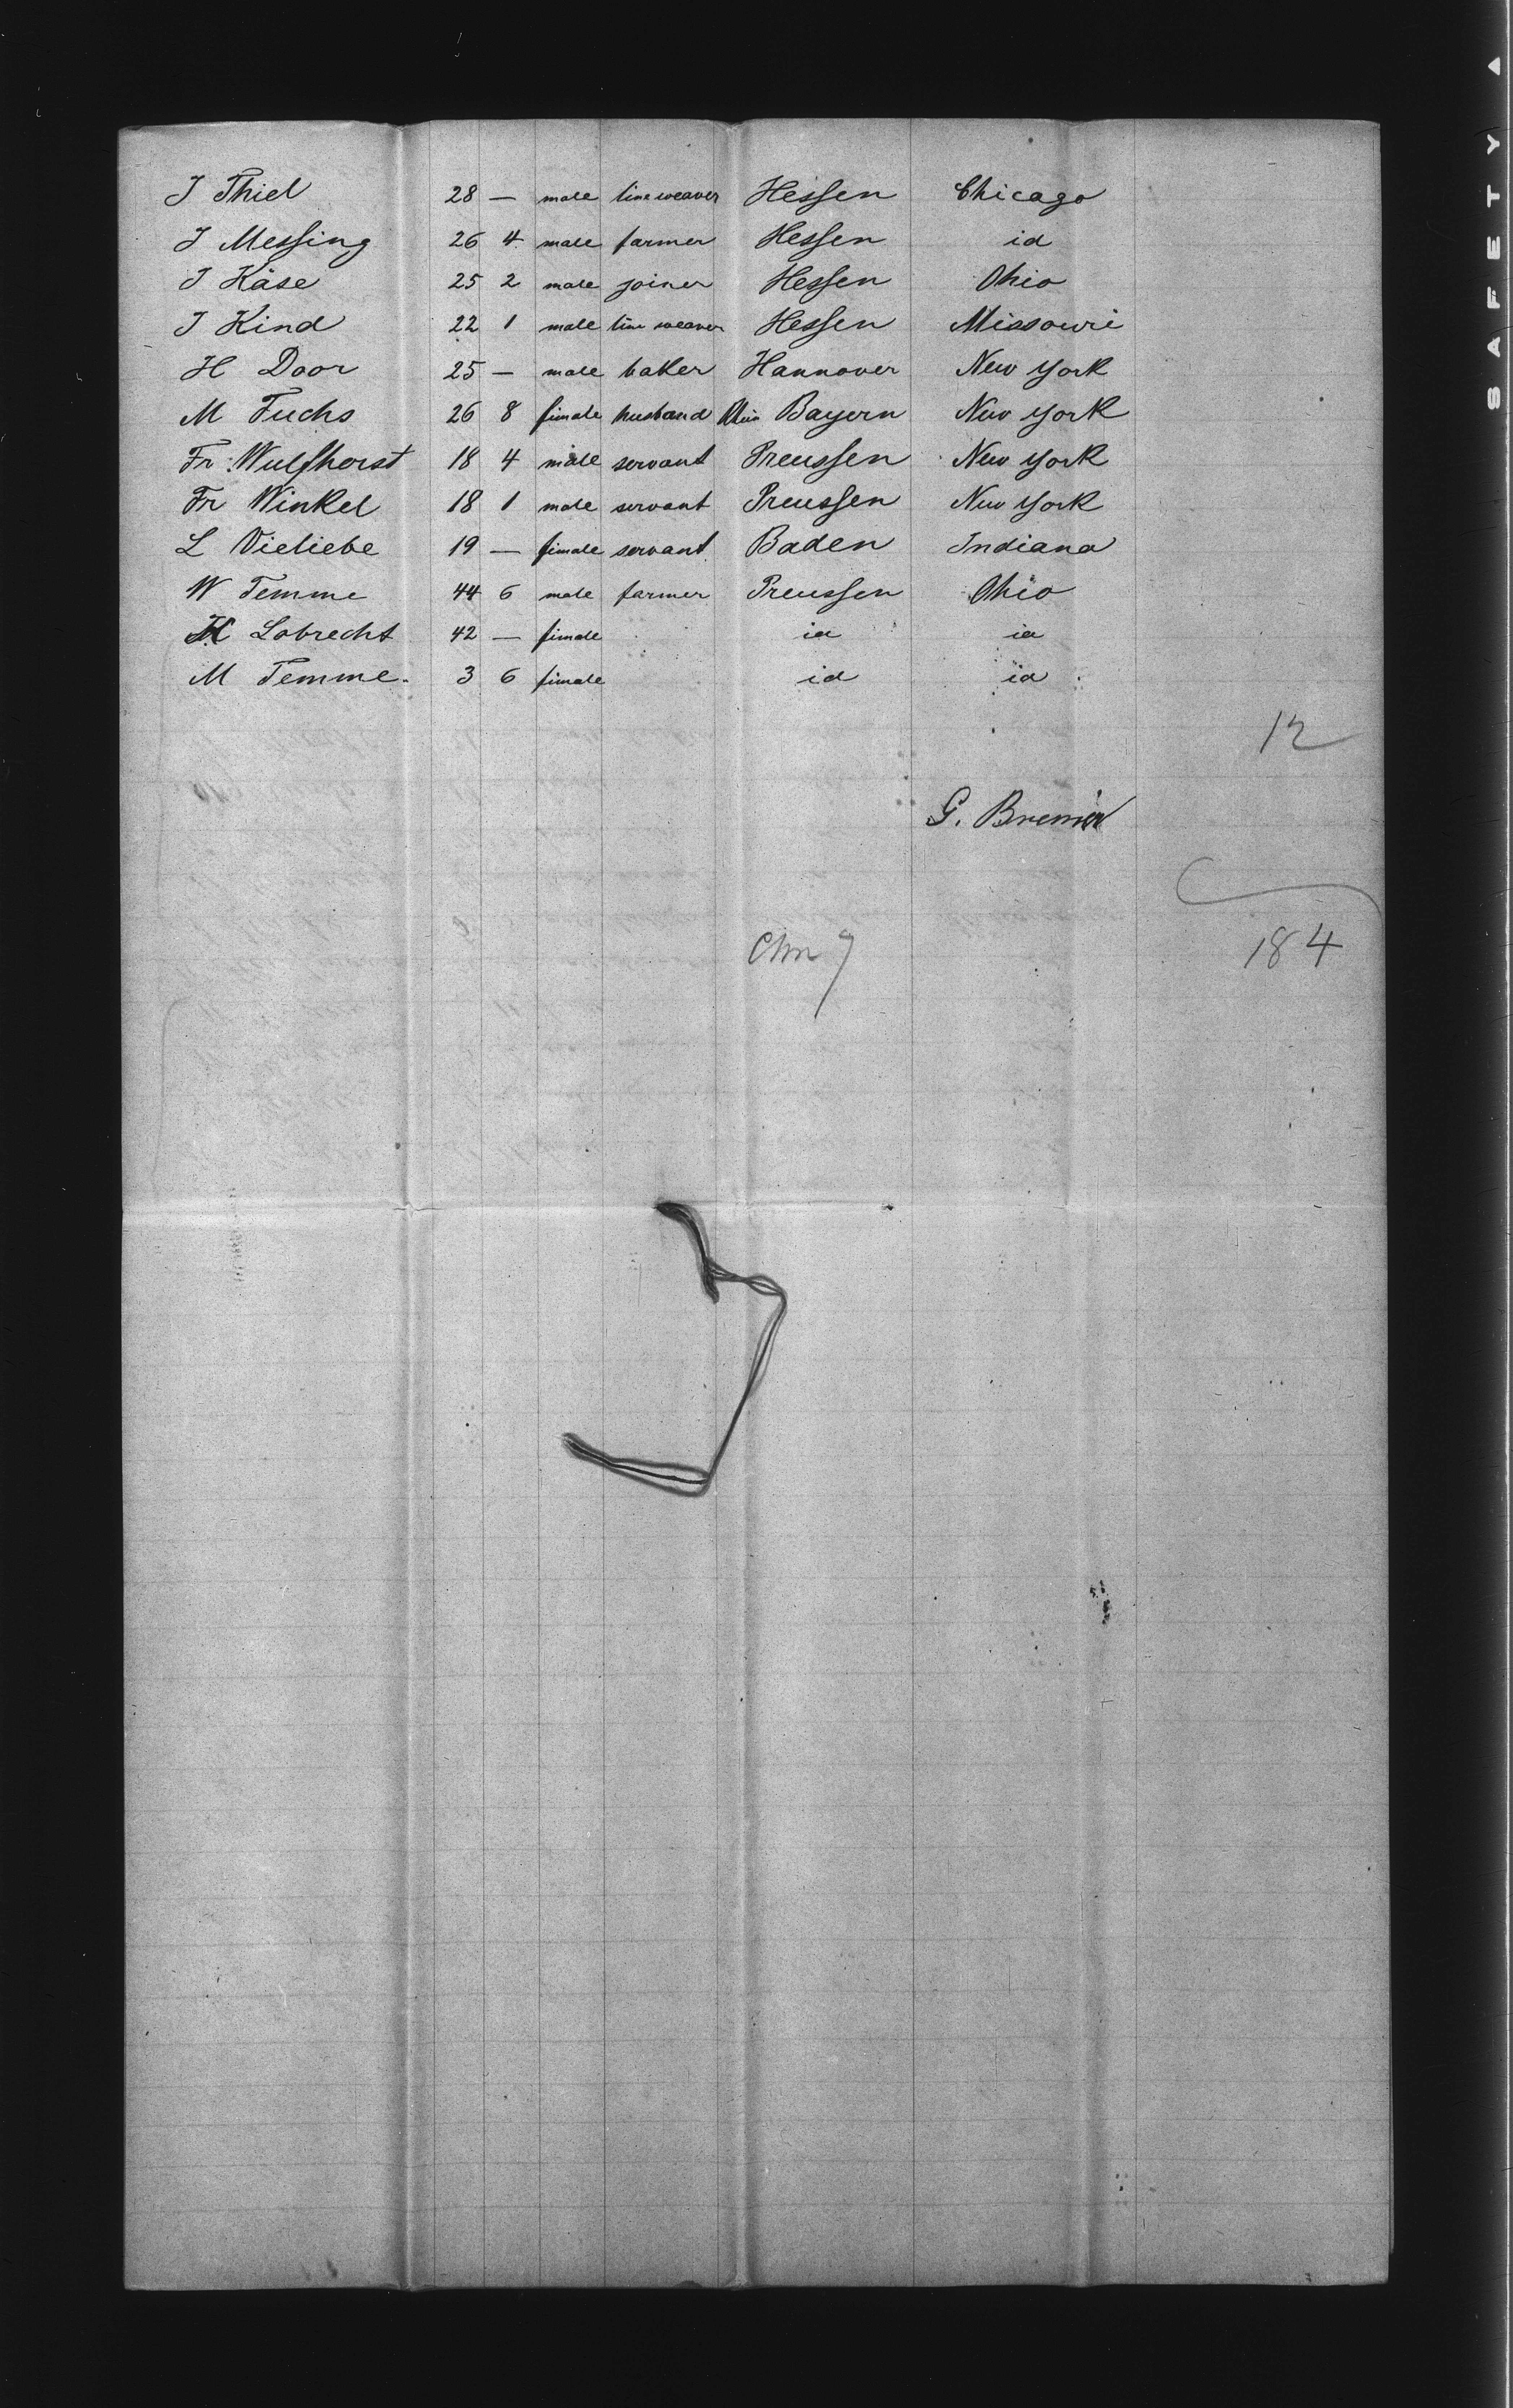 J Thiel 28 — male line weaver Hessen Chicago
J Messing 26 4 male farmer Hessen id
J Käse 25 2 male joiner Hessen Ohio
J Kind 22 1 male line weaver Hessen Missouri
H Door 25 — male baker Hannover New York
M Fuchs 26 8 female husband Rhein Bayern New York
Fr. Wulfhorst 18 4 male servant Preussen New York
Fr Winkel 18 1 male servant Preussen New York
L Vieliebe 19 — female servant Baden Indiana
W Temme 44 6 male farmer Preussen Ohio
Lobrecht 42 — female id id
M Temme. 3 6 female id id
12
G. Bremer
184
SAFETY